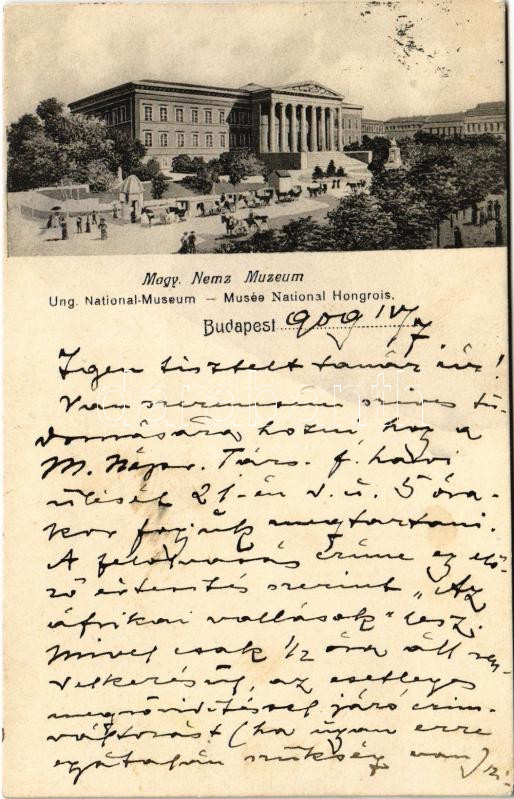 Magy. Nemz Muzeum
Ung. National-Museum — Musée National Hongrois.
Budapest 909 IV/7.
Igen tisztelt tanár úr!
Van szerencsém szíves tu-
domására hozni hogy a
M. Népr. Társ. f. havi
ülését 21-én d. u. 5 óra-
kor fogjuk megtartani.
A felolvasás címe az elő-
ző értesítés szerint "Az
áfrikai vallások" lesz.
Mivel csak 1/2 óra áll ren-
delkezésig az esetleges
megrövidítéssel járó cím-
változást (ha ugyan erre
egátalán szükség van)